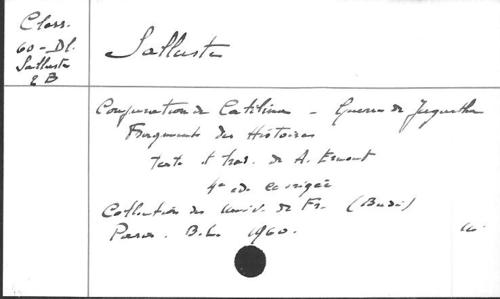 Class.
60-Dl.
Salluste
2 B
Salluste
Conjuration de Catilina - Guerre de Jugurtha
Fragments des Histoires
Texte et trad. de A. Ernout
4e ed. corrigée
Collection des Univ. de Fr. (Budé)
Paris. B.L. 1960.